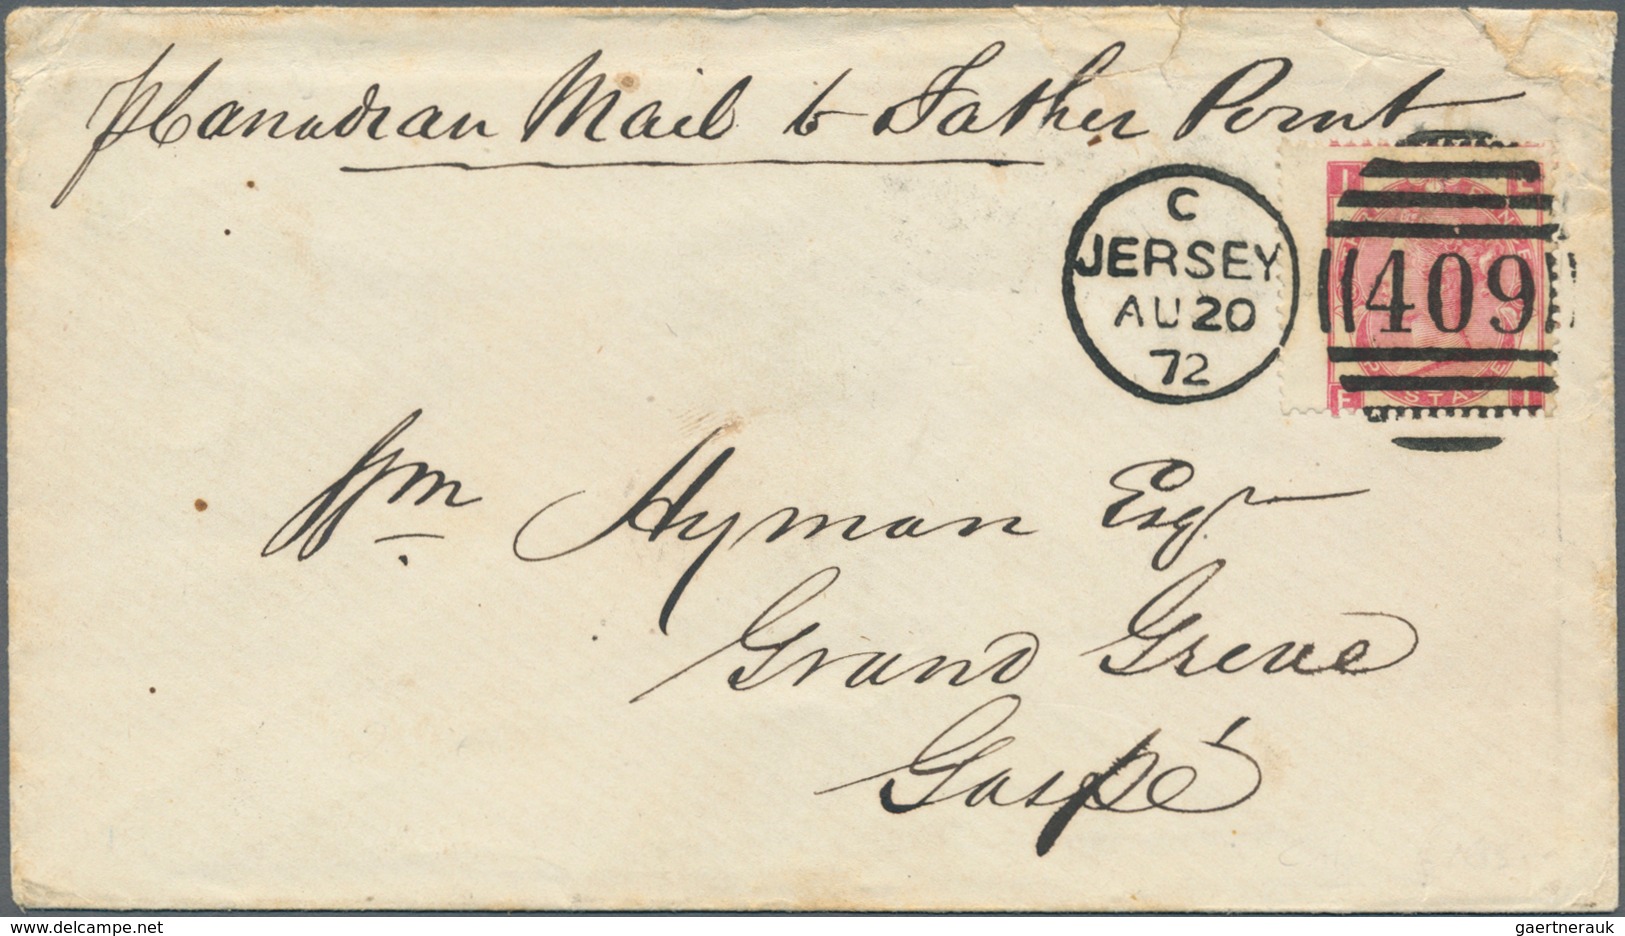 p Canadian Mail to Father Point
C
JERSEY
AU 20
72
409
I
F
STA
E
Wm Hyman Esqr
Grand Greve
Gaspé
delcampe.net
gaertnerauk